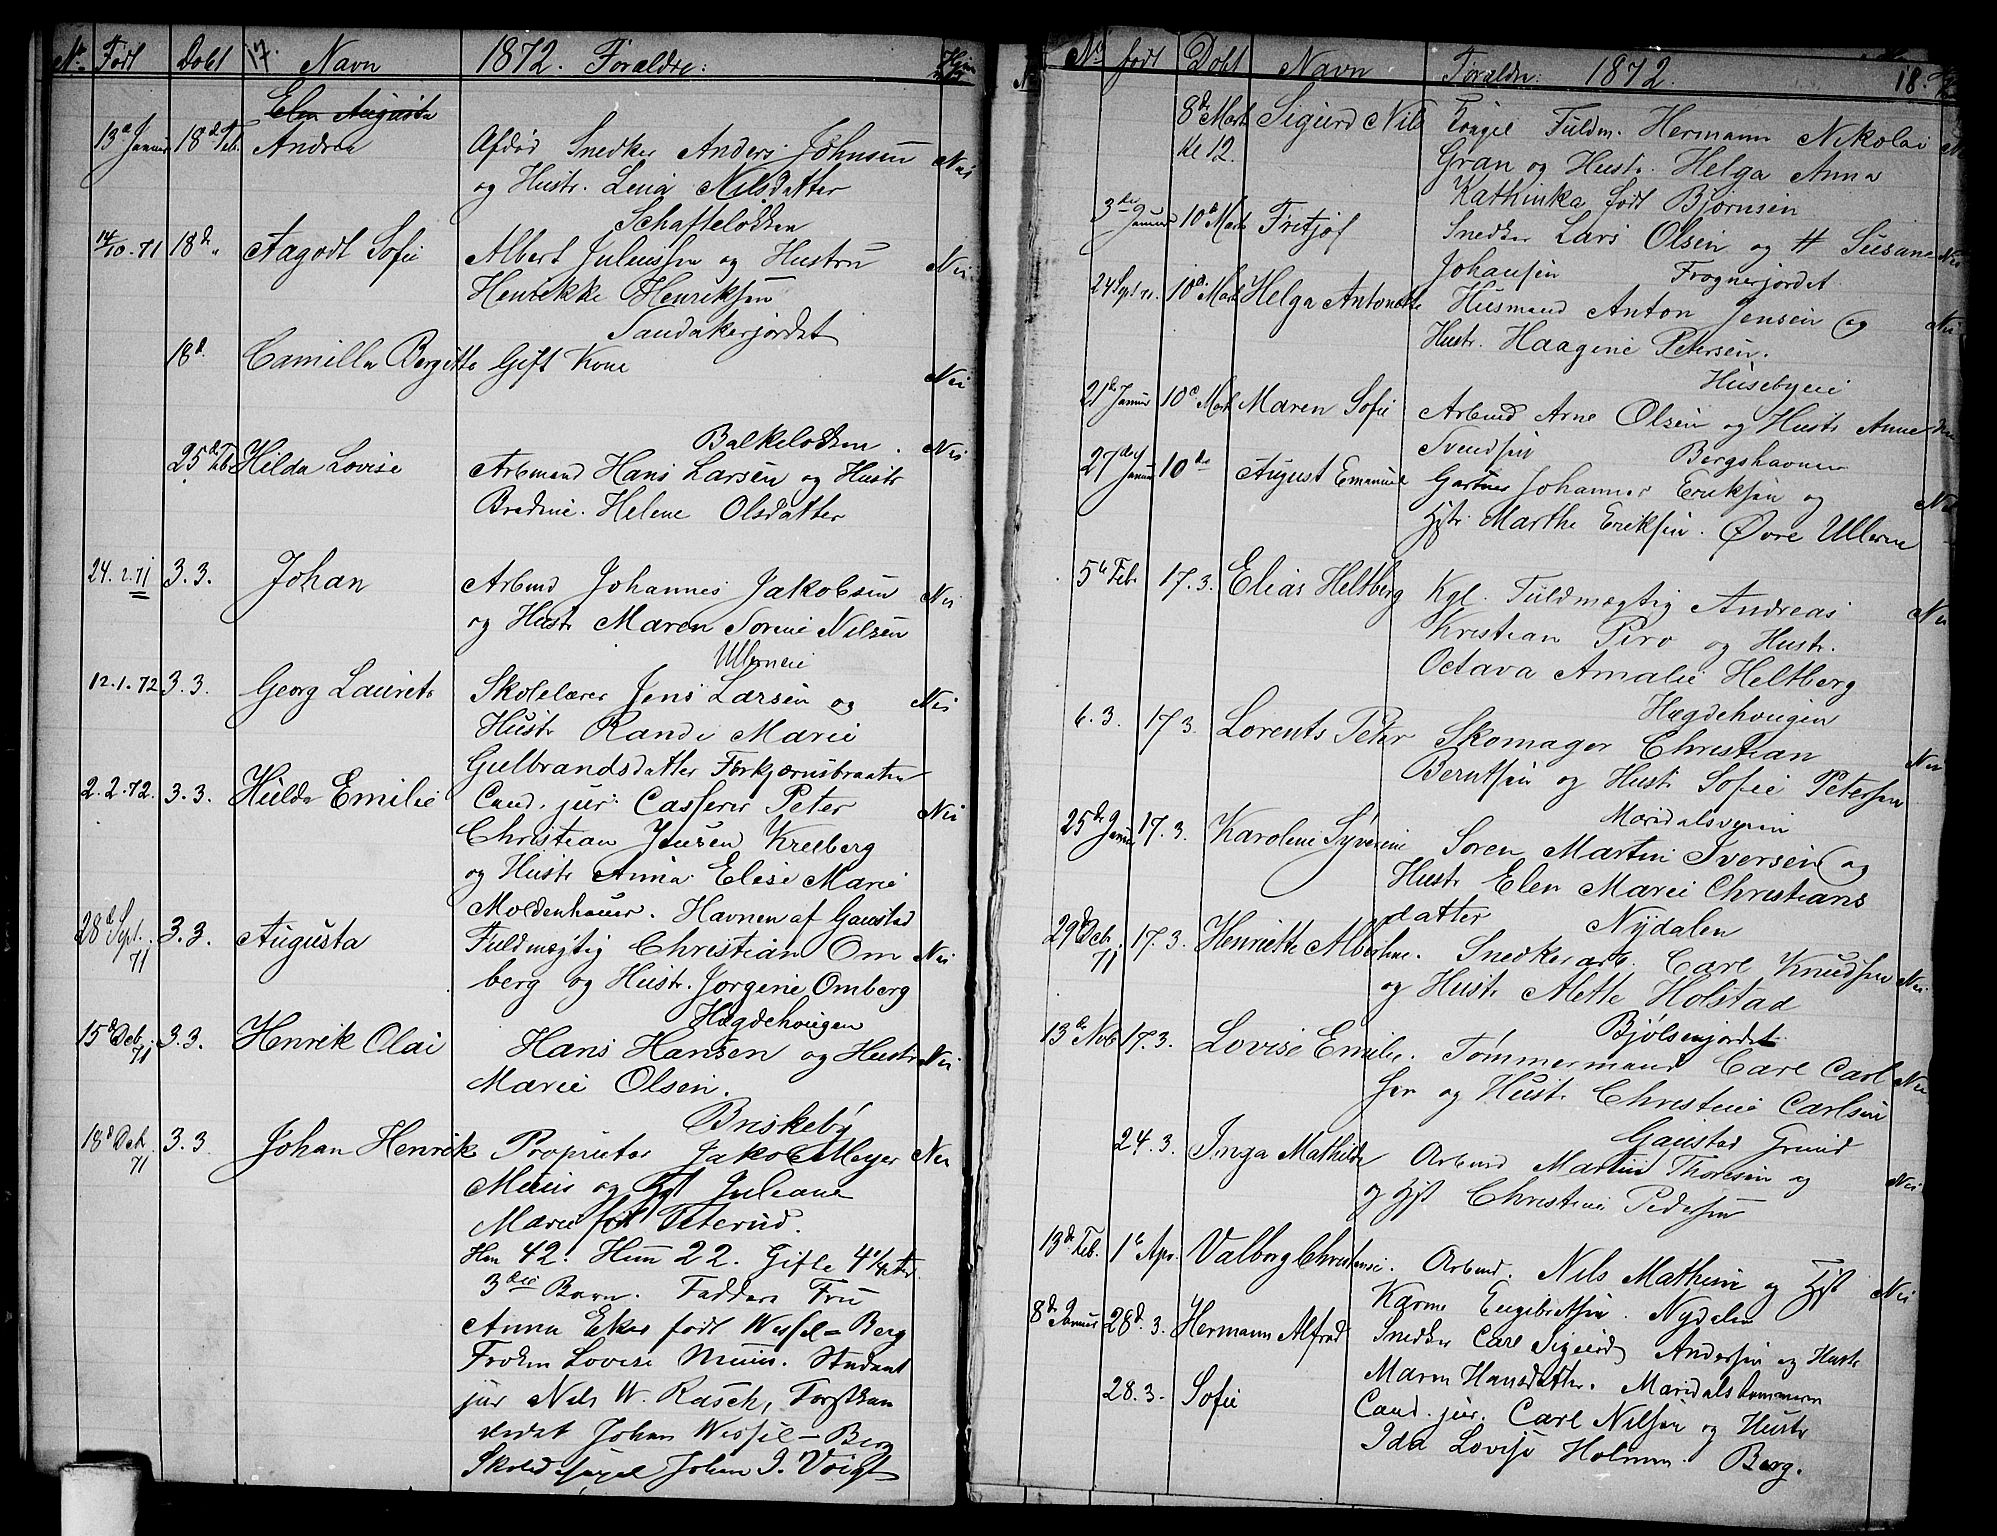 Født Døbt 17. Navn 1872. Forældre:
Elen Augusta
13d Januar 18d Feb. Andrea Afdød Snedker Anders Johnsen Nei
og Hustr. Lena Nilsdatter
Schafteløkken
14/10.71 18d " Aagodt Sofie Albert Juliussen og Hustru Nei
Henrikke Henriksen
Sandakerjordet
18d Camilla Bergitte Gift Kone Nei
Balkeløkken.
25d Feb Hilda Lovise Arbmand Hans Larsen og Hustr Nei
Bredine. Helene Olsdatter
24.2.71 3.3. Johan Arbmd Johannes Jakobsen Nei
og Hustr Maren Sorine Nilsen
Ullernei
12.1.72 3.3. Georg Laurets Skolelærer Jens Larsen og Nei
Hustr Randi Marie
Gulbrandsdatter
2.2.72. 3.3. Hulda Emilie Cand. jur. Casserer Peter Nei
Christian Jensen Kreeberg
og Hustr Anna Elise Marie
Moldenhauer. Havnen af Gaustad
28d Sept. 71 3.3. Augusta Fuldmægtig Christian Om Nei
berg og Hustr. Jorgine Omberg
Hægdehougen
15d Deb. 71 3.3. Henrik Olai Hans Hansen og Hustr Nei
Marie Olsen.
Briskeby
18d Oct. 71 3.3 Johan Henrik Proprietær Jakob Meyer Nei
og Hst Juliane
Marie født Peterud.
Hm 42. Hun 22. Gifte 4 1/2 År.
3die Barn. Faddere Fru
Anna Eker født Wessel-Berg
Frøken Lovise. Student
jur Niels W. Rasch, Forstkan
didat Johan Wessel-Berg
Johan J. Voigt
No født Døbt Navn Forældre: 1872. 18.
8d Mart Sigurd Nils Kongel Fuldm. Hermann Nikolai
kl 12. Gran og Hustr. Helga Anna
Kathinka født Bjørnsen
3die Januar 10d Mart Fritjof Snedker Lars Olsen og H Susane Nei
Johansen Frognerjordet
24 Sept 71. 10d Mart Helga Antonette Husmand Anton Jensen og Nei
Hustr. Haagine Petersen.
Husebyeie
21de Januar 10d Mart Maren Sofie Arbmd Arne Olsen og Hustr Anne
Svendsen Bergshavnen
27de Januar 10de August Emanuel Gartner Johannes Eriksen og Nei
Hstr Marthe Eriksen. Øvre Ullern
5te Feb 17.3. Elias Heltberg Kgl. Fuldmægtig Andreas Nei
Kristian Piro og Hustr.
Octava Amalie Heltberg
Hægdehougen
6.3. 17.3. Lorents Peter Skomager Christian Nei
Berntsen og Hustr Sofie Petersen
Maridalsveien
25de Januar 17.3. Karoline Syverine Soren Martin Iversen og
Hustr Elen Marie Christians
datter Nydalen
29d Deb. 71 17.3. Henriette Albertine. Snedkerarb. Carl Knudsen Nei
og Hustr Alette Holstad
Bjølsenjordet
13de Nvb 17.3. Lovise Emilie. Tømmermand Carl Carl Nei
sen og Hustr. Christine Carlsen
Gaustad Grund
24.3. Inga Mathilde Arbmd Martin Thoresen og Nei
og Hst Christine Pedersen
13de Feb. 1te Apr. Valborg Christensi. Arbmd. Nils Mathisen og Hst Nei
Karine Engebretsen. Nydalen
8de Januar 28d.3. Hermann Alfred Snedker Carl Sigurd Andersen og Hustr
Maren Hansdatter. Maridalshammeren
28.3. Sofie Cand. jur. Carl Nilsen og Hustr
Ida Lovise Holmen. Berg.